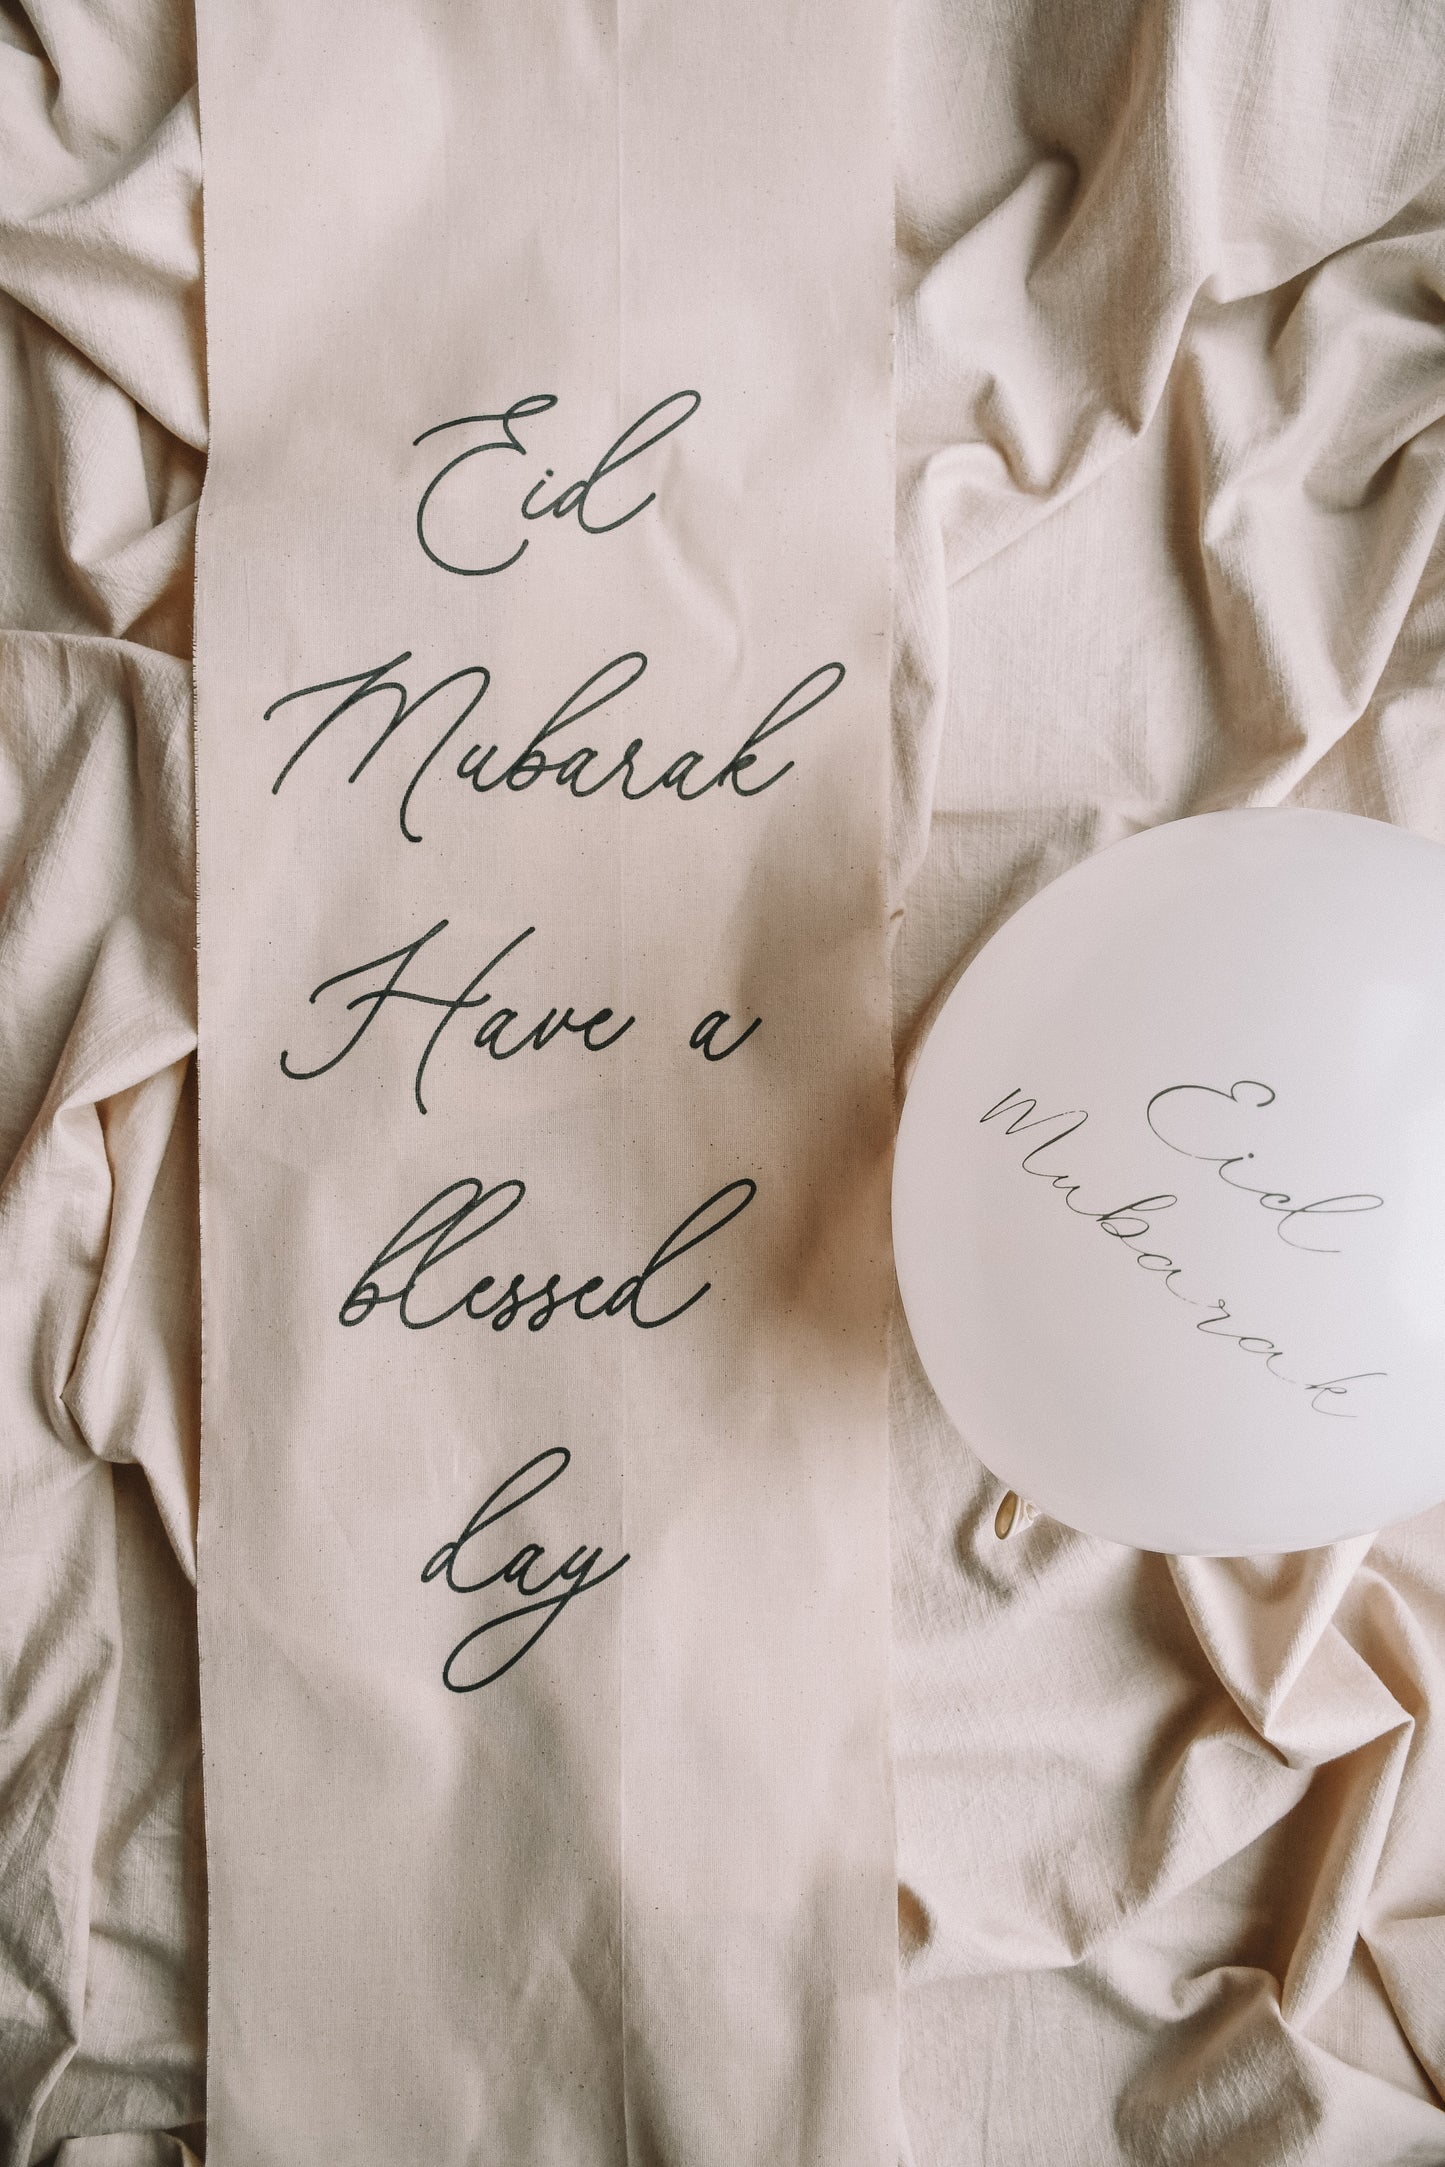 Eid
Mubarak
Have a
blessed
day
Eid
Mubarak